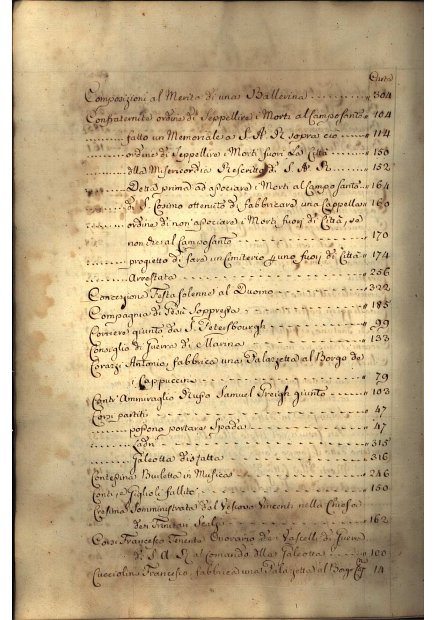 Carta
Composizioni al Merito di una Ballerina " 304
Confraternita ordine di Seppellire i Morti al Camposanto " 104
fatto un Memoriale a S. A. R. sopra ciò " 114
ordine di Seppellire i Morti fuori La Città " 150
alla Misericordia Rescritto di S. A. R. " 152
Detta prima ad asociare i Morti al Campo santo " 164
di S. Cosimo ottenuto di fabbricare una Cappella " 160
ordine di non asociare i Morti fuori di Città, se
non che al Camposanto " 170
progietto di fare un Cimiterio fuori di Città " 174
Arrestata " 256
Concezione Festa Solenne al Duomo " 322
Compagnia di Gesù Soppressa " 185
Corriere giunto da S. Petersbourgh " 99
Consiglio di Guerra di Marina " 133
Corazzi Antonio, fabbrica una Palazzetta al Borgo de
i Cappuccini " 79
Cont' Ammiraglio Russo Samuel Greigh giunto " 103
Corsi partiti " 47
possono portare Spada " 47
Ladri " 315
Galeotta disfatta " 316
Contessina Burletta in Musica " 246
Conti, e Giglioli falliti " 150
Cresima Somministrata dal Vescovo nella Chiesa
dei Trinitari Scalzi " 162
Francesco Tenente Onorario dei Vascelli di Guerra
di S. A. R. al Comando della Galeotta " 100
Cucciolini Francesco, fabbrica una Palazzetta al Borgo " 14